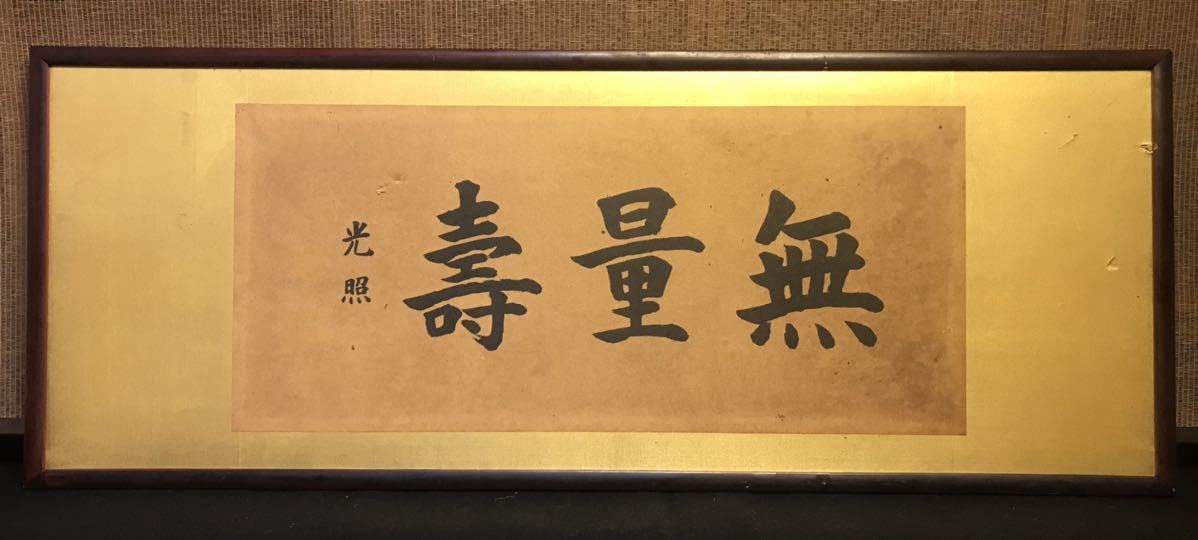 無量壽
光照